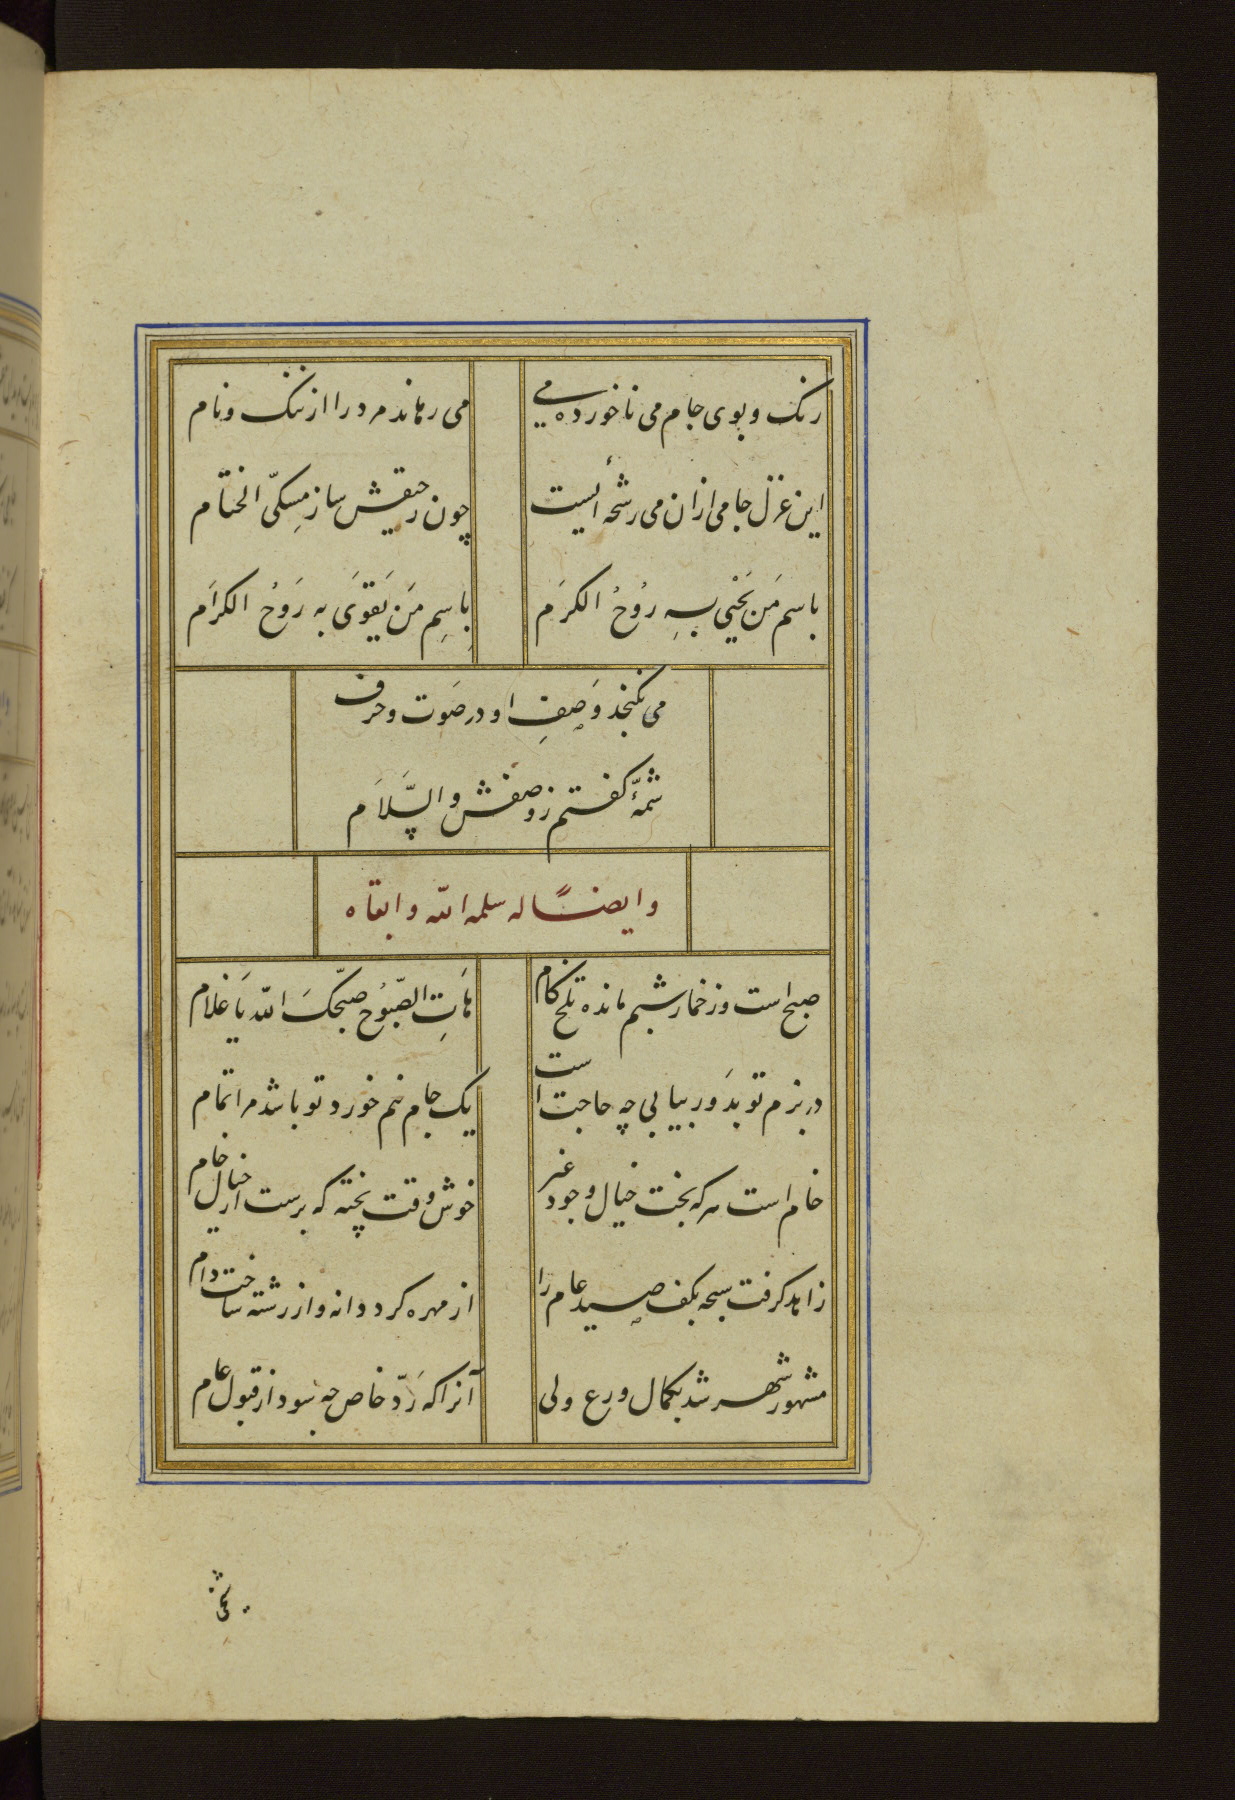 رنک و بوی جام می ناخورده می
می رهاند مرد را از ننک و نام
این غزل جامی ازان می رشحهٔ ایست
چون رحیقش ساز مِسکّی الختام
باسم مَن یَحْیی بِهِ رُوحُ الکرَم
بِاسِم مَن یَقوَی به رَوحُ الکرَام
می نکنجد وَصفِ او در صَوت و حرف
شمّهٔ کفتم ز وصفش والسَّلاَم
وایضًا له سلمه الله وابقاه
صبح است وز خمار شبم مانده تلخ کام
هَاتِ الصّبُوح صبّحکَ الله یَا غلام
در بزم تو بدَور بیابی چه حاجت است
یک جام نیم خورد تو باشد مرا تمام
خام است هر که پخت خیال وجود غیر
خوش وقت پختهٔ که برست از خیال خام
زاهد کرفت سبحه بکف صید عام را
از مهره کرد دانه و از رشته ساخت دام
مشهور شهر شد بکمال ورع ولی
آنرا که رَدّ خاص چه سود از قبول عام